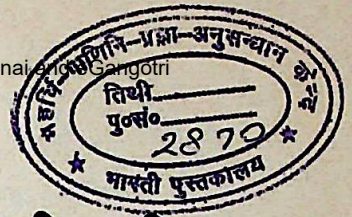 nai and eGangotri
महर्षि-पाणिनि-प्रज्ञा-अनुसन्धान केन्द्र
तिथी
पु०सं० 2870
भारती पुस्तकालय